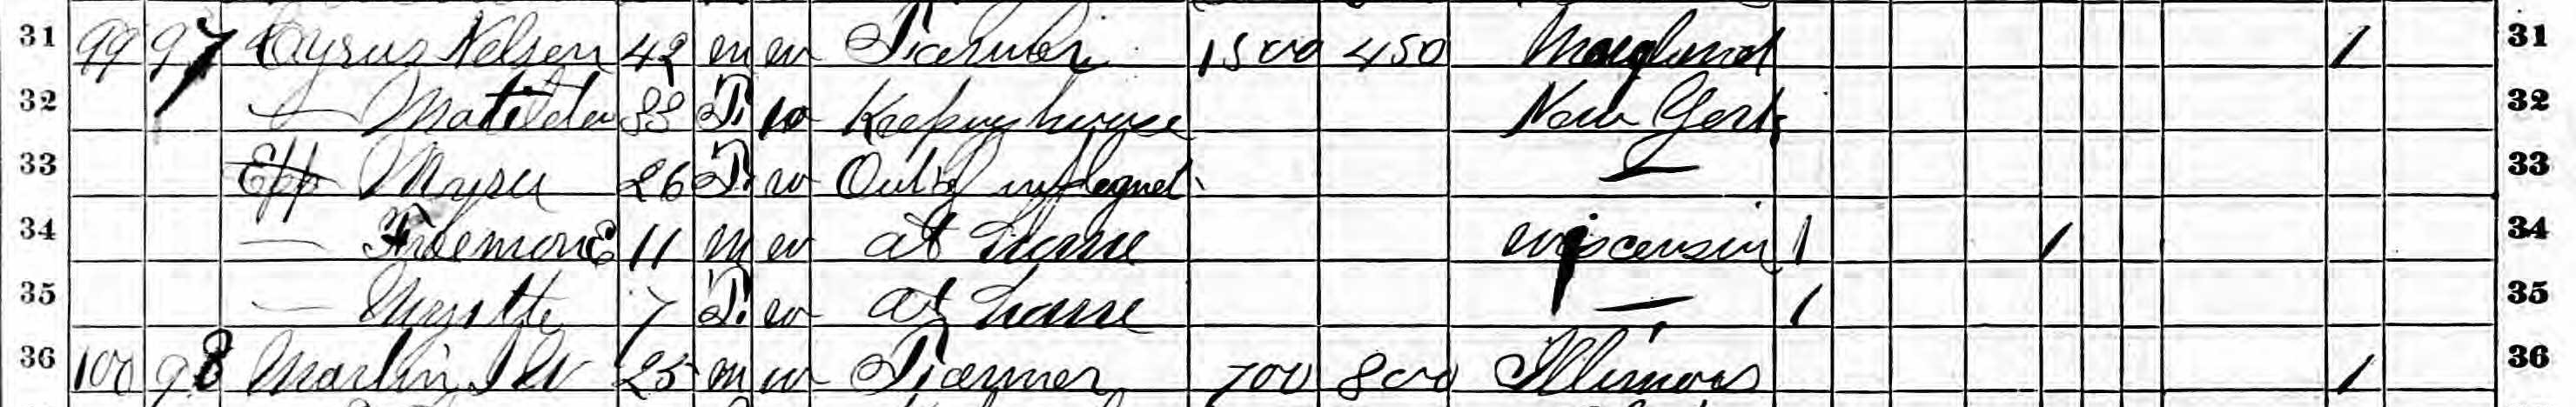 31 99 97 Cyrus Nelson 42 m w Farmer 1500 450 Maryland 1 31
32 — Matilda 33 F. w Keeping house New York 32
33 Epp 26 F. w Out of — 33
34 — Freemon E 11 m w at home Wisconsin 1 1 34
35 — Myrtte 7 F. w at home — 1 35
36 100 98 Martin 25 m w Farmer 700 800 Illinois 1 36